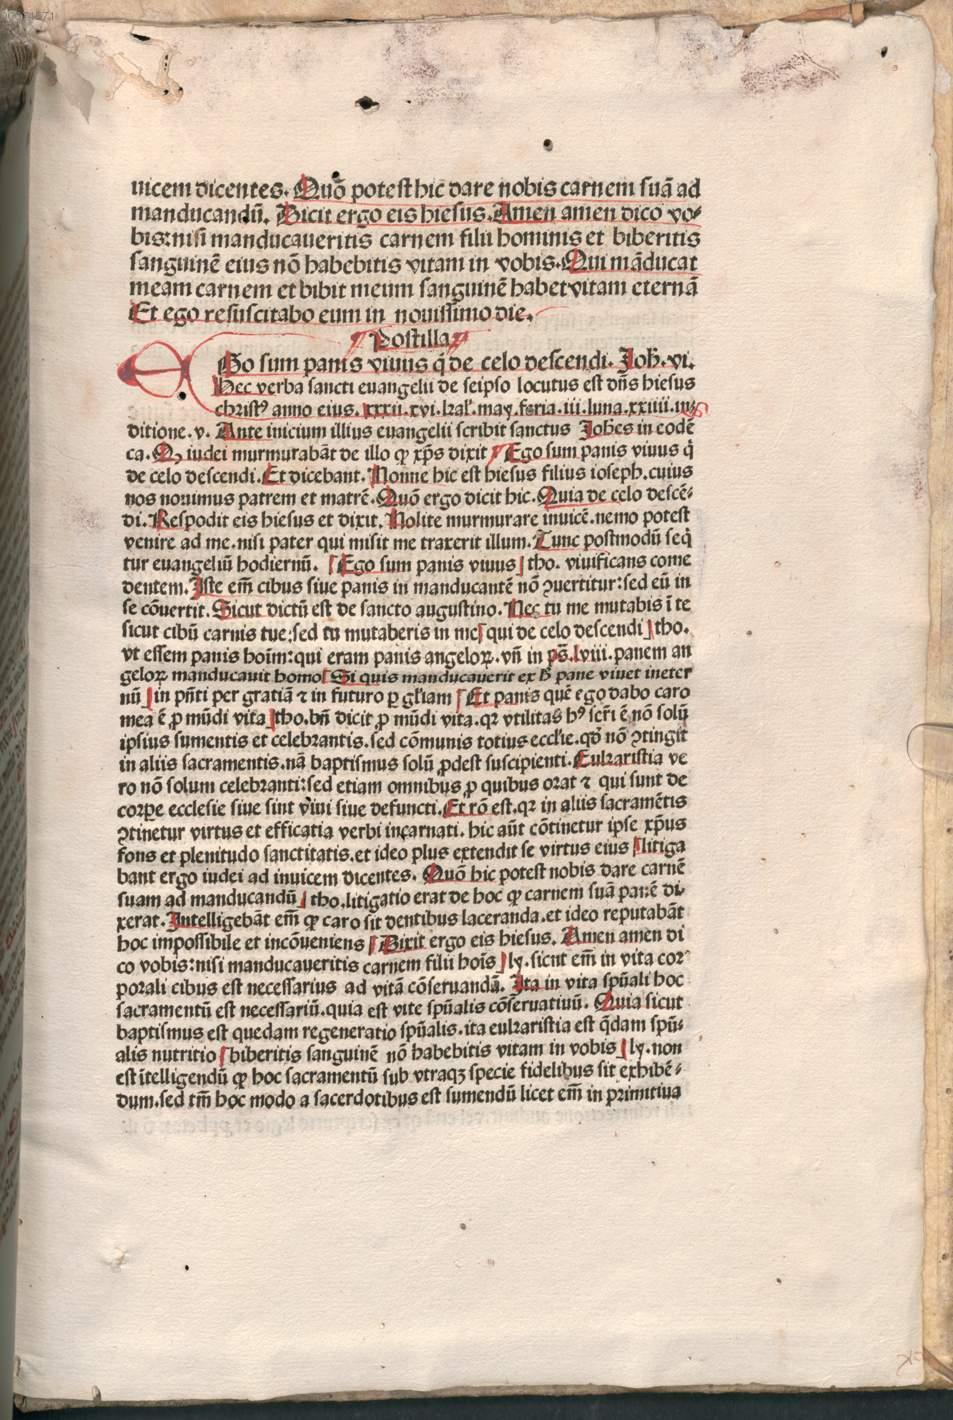 uicem dicentes. Quō potest hic dare nobis carnem suā ad
manducandū. Dicit ergo eis hiesus. Amen amen dico vo⸗
bis: nisi manducaueritis carnem filii hominis et biberitis
sanguinē eius nō habebitis vitam in vobis. Qui māducat
meam carnem et bibit meum sanguinē habet vitam eternā
Et ego resuscitabo eum in nouissimo die.
Postilla
EGo sum panis viuus q̄ de celo descendi. Joh̄. vi.
Hec verba sancti euangelii de seipso locutus est dn̄s hiesus
christꝰ anno eius. xxxii. xvi. kal'. may. feria. iii. luna. xxiiii. in⸗
ditione. v. Ante inicium illius euangelii scribit sanctus Joh̄es in eodē
ca. Q iudei murmurabāt de illo ꝙ xp̄s dixit Ego sum panis viuus q̄
de celo descendi. Et dicebant. Nonne hic est hiesus filius ioseph. cuius
nos nouimus patrem et matrē. Quō ergo dicit hic. Quia de celo descē⸗
di. Respodit eis hiesus et dixit. Nolite murmurare inuicē. nemo potest
venire ad me. nisi pater qui misit me traxerit illum. Tunc postmodū seq̄
tur euangeliū hodiernū. Ego sum panis viuus tho. viuificans come
dentem. Iste em̄ cibus siue panis in manducantē nō ꝯuertitur: sed eū in
se cōuertit. Sicut dictū est de sancto augustino. Nec tu me mutabis ī te
sicut cibū carnis tue: sed tu mutaberis in me qui de celo descendi tho.
vt essem panis hoīm: qui eram panis angeloꝝ. vn̄ in ps̄. lviii. panem an
geloꝝ manducauit homo Si quis manducauerit ex h̄ pane viuet ineter
nū in pn̄ti per gratiā ⁊ in futuro ꝑ gl'iam Et panis quē ego dabo caro
mea ē ꝓ mūdi vita tho. bn̄ dicit ꝓ mūdi vita. qꝛ vtilitas hꝰ scr̄i ē nō solū
ipsius sumentis et celebrantis. sed cōmunis totius eccl'ie. qd̄ nō ꝯtingit
in aliis sacramentis. nā baptismus solū ꝓdest suscipienti. Eukaristia ve
ro nō solum celebranti: sed etiam omnibus ꝓ quibus orat ⁊ qui sunt de
corpe ecclesie siue sint viui siue defuncti. Et rō est. qꝛ in aliis sacramētis
ꝯtinetur virtus et efficatia verbi incarnati. hic aūt cōtinetur ipse xp̄us
fons et plenitudo sanctitatis. et ideo plus extendit se virtus eius litiga
bant ergo iudei ad inuicem dicentes. Quō hic potest nobis dare carnē
suam ad manducandū tho. litigatio erat de hoc ꝙ carnem suā panē di⸗
xerat. Intelligebāt em̄ ꝙ caro sit dentibus laceranda. et ideo reputabāt
hoc impossibile et incōueniens Dixit ergo eis hiesus. Amen amen di
co vobis: nisi manducaueritis carnem filii hoīs ly. sicut em̄ in vita cor
porali cibus est necessarius ad vitā cōseruandā. Ita in vita spūali hoc
sacramentū est necessariū. quia est vite spūalis cōseruatiuū. Quia sicut
baptismus est quedam regeneratio spūalis. ita eukaristia est q̄dam spū⸗
alis nutritio biberitis sanguinē nō habebitis vitam in vobis ly. non
est ītelligendū ꝙ hoc sacramentū sub vtraqꝫ specie fidelibus sit exhibē⸗
dum. sed tm̄ hoc modo a sacerdotibus est sumendū licet em̄ in primitiua